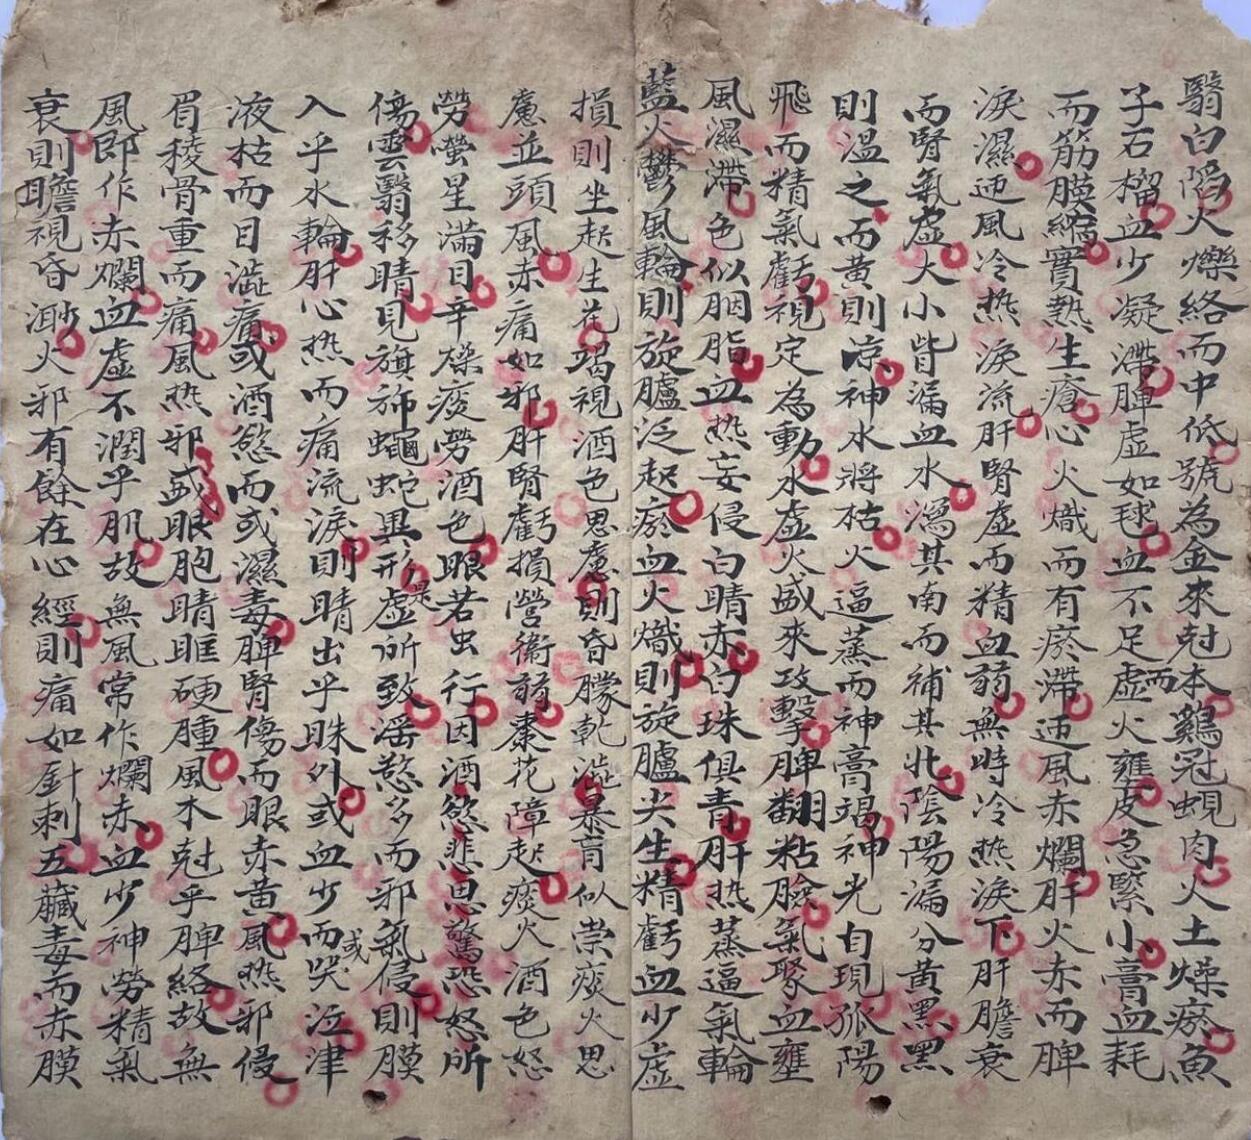 翳白陷火爍絡而中低號為金來尅本鷄冠蜆肉火土燥瘀魚
子石榴血少凝滯脾虛如球血不足虛而火壅皮急緊小膏血耗
而筋膜縮實熱生瘡心火熾而有瘀滯迊風赤爛肝火赤而脾
淚濕迊風冷热淚流肝腎虛而精血弱無時冷热淚下肝膽衰
而腎氣虛大小眥漏血水瀉其南而補其北陰陽漏分黃黑黑
則溫之而黃則涼神水將枯火逼蒸而神膏竭神光自現孤陽
飛而精氣虧視定為動水虛火盛來攻擊脾翻粘臉氣聚血壅
風濕滯色似胭脂血热妄侵白睛赤白珠俱青肝热蒸逼氣輪
藍火鬱風輪則旋臚泛起瘀血火熾則旋臚尖生精虧血少虛
損則坐起生花竭視酒色思慮則昏朦乾澁暴盲似祟痰火思
慮並頭風赤痛如邪肝腎虧損營衛弱棗花障起痰火酒色怒
勞螢星滿目辛燥痰勞酒色眼若虫行因酒慾悲思驚恐怒所
傷雲翳移睛見旗斾蠅蛇異形虛所致淫慾多而邪氣侵則膜
入乎水輪肝心热而痛流淚則睛出乎眛外或血少而或哭泣津
液枯而目澁痛或酒慾而或濕毒脾腎傷而眼赤黃風热邪侵
眉稜骨重而痛風热邪盛眼胞睛眶硬腫風木尅乎脾絡故無
風即作赤爛血虛不潤乎肌故無風常作爛赤血少神勞精氣
衰則瞻視昏渺火邪有餘在心經則痛如針刺五臟毒而赤膜